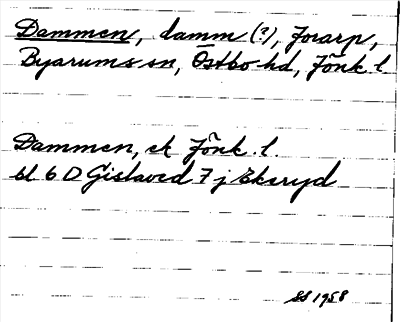 Dammen, damm (?), Jorarp,
Byarums sn, Östbo hd, Jönk. l.
Dammen, ek Jönk. l.
bl 6 D Gislaved 7 j Ekeryd
SS 1958